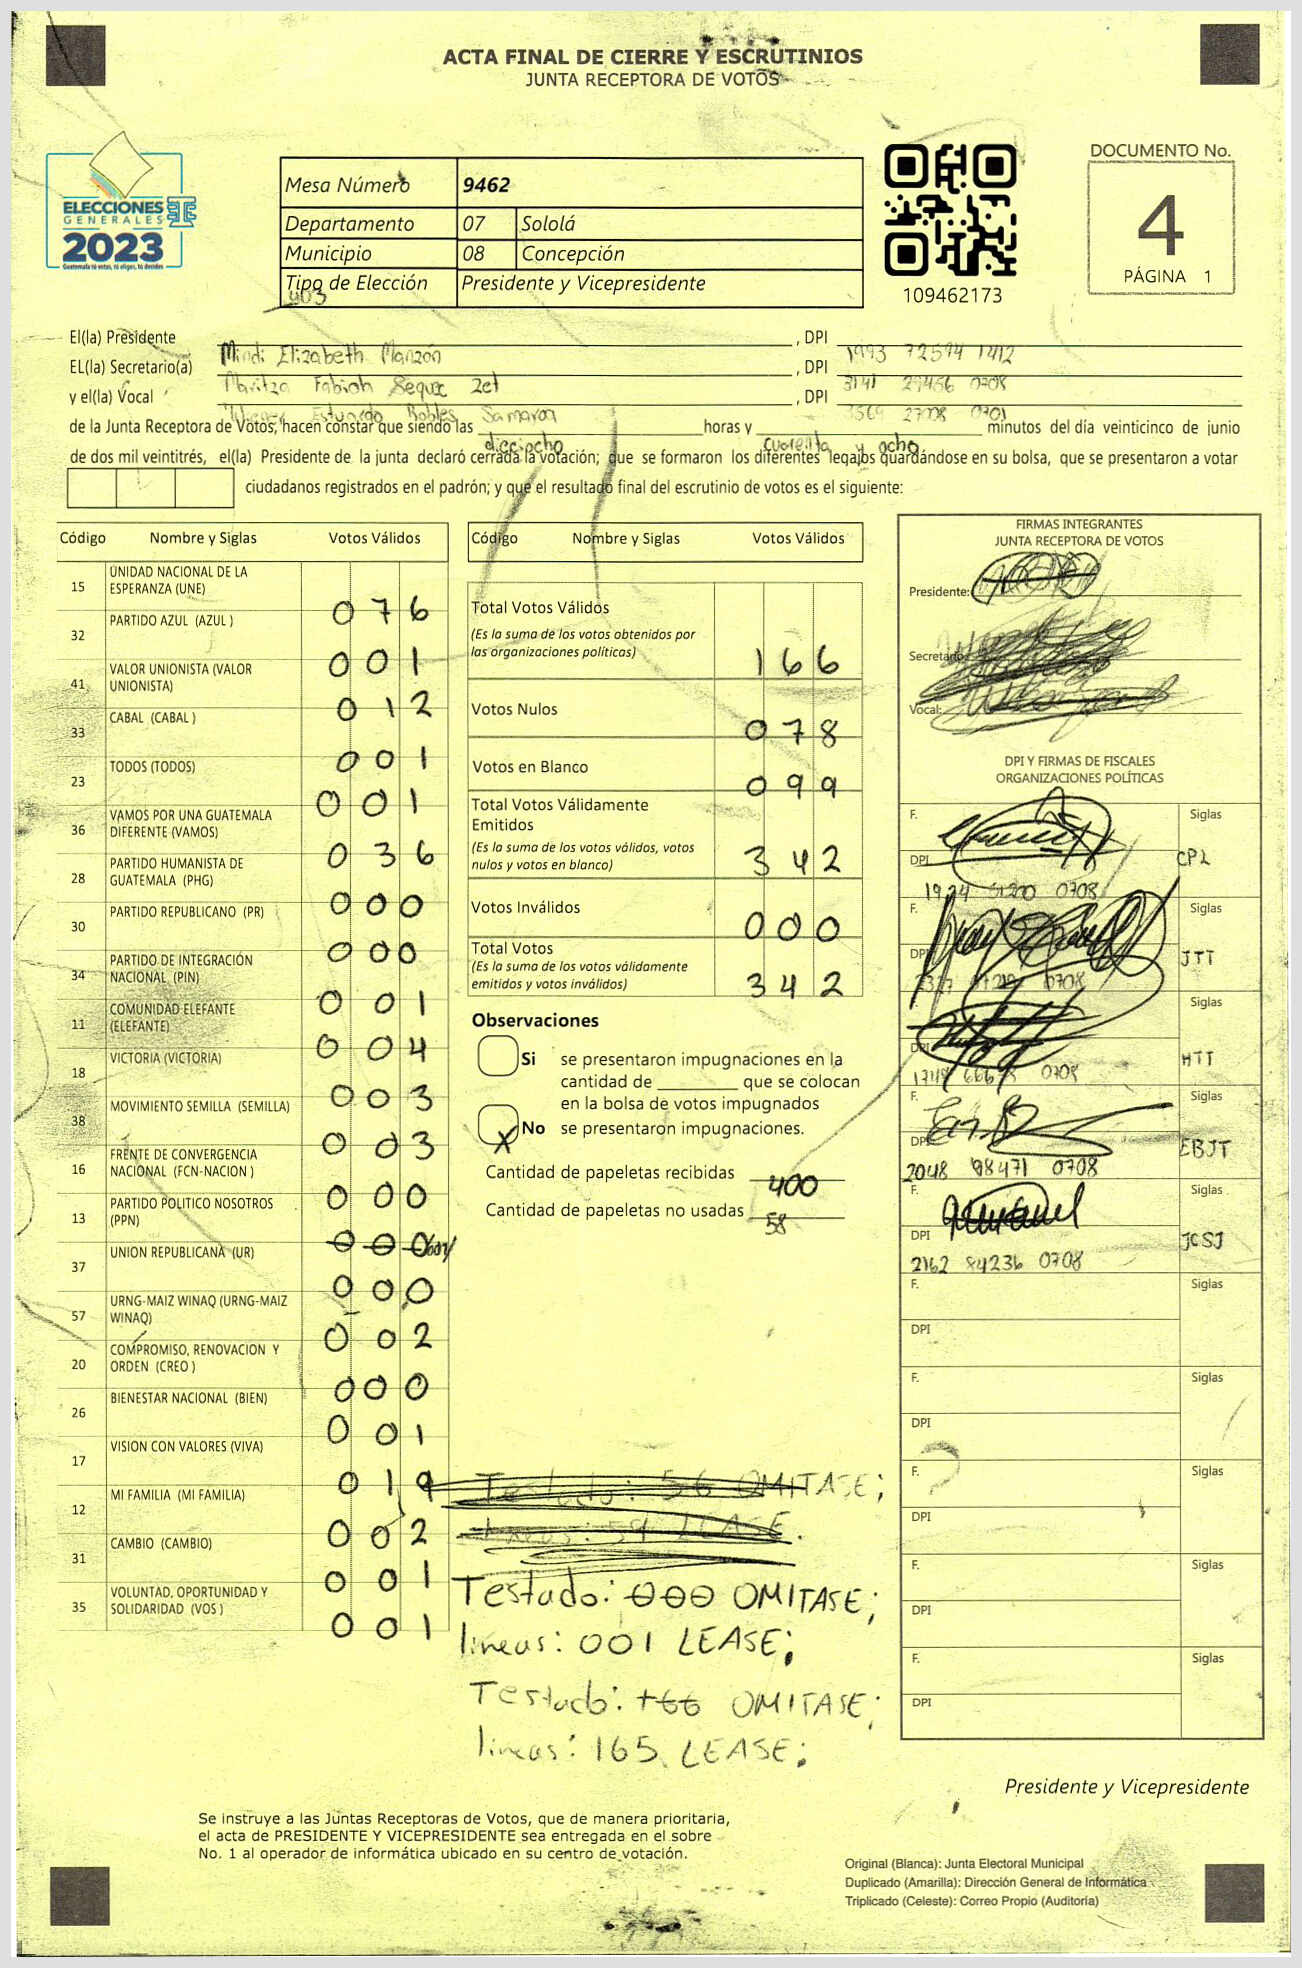 ACTA FINAL DE CIERRE Y ESCRUTINIOS
JUNTA RECEPTORA DE VOTOS
ELECCIONES
GENERALES
2023
Guatemala tú votas, tú eliges, tú decides
Mesa Número 9462
Departamento 07 Sololá
Municipio 08 Concepción
Tipo de Elección Presidente y Vicepresidente
403
109462173
DOCUMENTO No.
4
PÁGINA 1
El(la) Presidente Mindi Elizabeth Monzón , DPI 1993 72594 1412
EL(la) Secretario(a) Maritza Fabiola , DPI 3141 29456 0708
y el(la) Vocal Estuardo Robles Samaroa , DPI 3569 27008 0701
de la Junta Receptora de Votos, hacen constar que siendo las dieciocho horas y cuarenta y ocho minutos del día veinticinco de junio
de dos mil veintitrés, el(la) Presidente de la junta declaró cerrada la votación; que se formaron los diferentes legajos guardándose en su bolsa, que se presentaron a votar
ciudadanos registrados en el padrón; y que el resultado final del escrutinio de votos es el siguiente:
Código Nombre y Siglas Votos Válidos
15 UNIDAD NACIONAL DE LA ESPERANZA (UNE) 076
32 PARTIDO AZUL (AZUL ) 001
41 VALOR UNIONISTA (VALOR UNIONISTA) 012
33 CABAL (CABAL ) 001
23 TODOS (TODOS) 001
36 VAMOS POR UNA GUATEMALA DIFERENTE (VAMOS) 036
28 PARTIDO HUMANISTA DE GUATEMALA (PHG) 000
30 PARTIDO REPUBLICANO (PR) 000
34 PARTIDO DE INTEGRACIÓN NACIONAL (PIN) 001
11 COMUNIDAD ELEFANTE (ELEFANTE) 004
18 VICTORIA (VICTORIA) 003
38 MOVIMIENTO SEMILLA (SEMILLA) 003
16 FRENTE DE CONVERGENCIA NACIONAL (FCN-NACION ) 000
13 PARTIDO POLITICO NOSOTROS (PPN) 000 001
37 UNION REPUBLICANA (UR) 000
57 URNG-MAIZ WINAQ (URNG-MAIZ WINAQ) 002
20 COMPROMISO, RENOVACION Y ORDEN (CREO ) 000
26 BIENESTAR NACIONAL (BIEN) 001
17 VISION CON VALORES (VIVA) 019
12 MI FAMILIA (MI FAMILIA) 002
31 CAMBIO (CAMBIO) 001
35 VOLUNTAD, OPORTUNIDAD Y SOLIDARIDAD (VOS ) 001
Código Nombre y Siglas Votos Válidos
Total Votos Válidos 166
(Es la suma de los votos obtenidos por
las organizaciones políticas)
Votos Nulos 078
Votos en Blanco 099
Total Votos Válidamente
Emitidos 342
(Es la suma de los votos válidos, votos
nulos y votos en blanco)
Votos Inválidos 000
Total Votos 342
(Es la suma de los votos válidamente
emitidos y votos inválidos)
Observaciones
Si se presentaron impugnaciones en la
cantidad de ________ que se colocan
en la bolsa de votos impugnados
X No se presentaron impugnaciones.
Cantidad de papeletas recibidas 400
Cantidad de papeletas no usadas 58
Testado: 56 OMITASE;
LEASE.
Testado: 000 OMITASE;
lineas: 001 LEASE;
Testado: 166 OMITASE;
lineas: 165 LEASE;
FIRMAS INTEGRANTES
JUNTA RECEPTORA DE VOTOS
Presidente:
Secretario:
Vocal:
DPI Y FIRMAS DE FISCALES
ORGANIZACIONES POLÍTICAS
F. Siglas
DPI CPL
0708
F. Siglas
DPI JTT
0708
F. Siglas
DPI HTT
0708
F. Siglas
DPI EBJT
2048 98471 0708
F. Siglas
DPI JCSJ
2162 84236 0708
F. Siglas
DPI
F. Siglas
DPI
F. Siglas
DPI
F. Siglas
DPI
F. Siglas
DPI
Presidente y Vicepresidente
Se instruye a las Juntas Receptoras de Votos, que de manera prioritaria,
el acta de PRESIDENTE Y VICEPRESIDENTE sea entregada en el sobre
No. 1 al operador de informática ubicado en su centro de votación.
Original (Blanca): Junta Electoral Municipal
Duplicado (Amarilla): Dirección General de Informática
Triplicado (Celeste): Correo Propio (Auditoría)